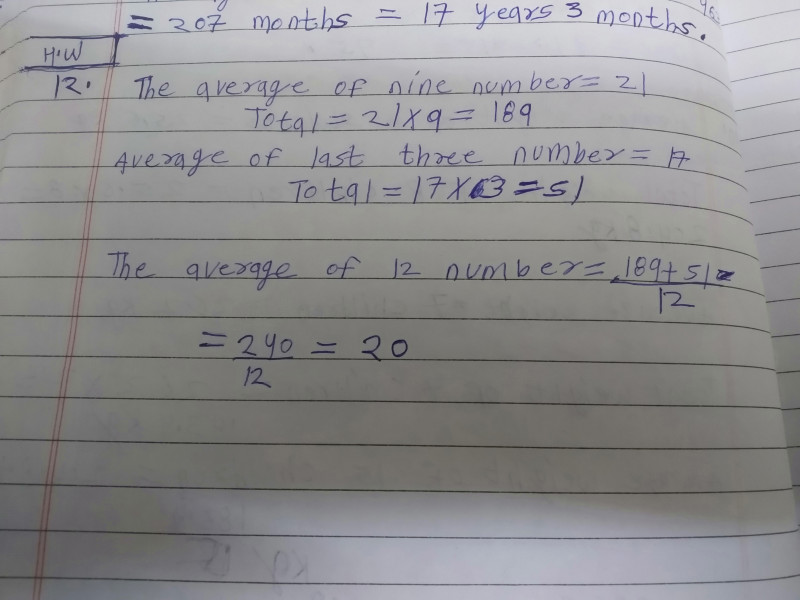 = 207 months = 17 years 3 months.
H.W
12. The average of nine number = 21
Total = 21 x 9 = 189
Average of last three number = 17
Total = 17 x 3 = 51
The average of 12 number = 189 + 51 =
12
= 240 = 20
12